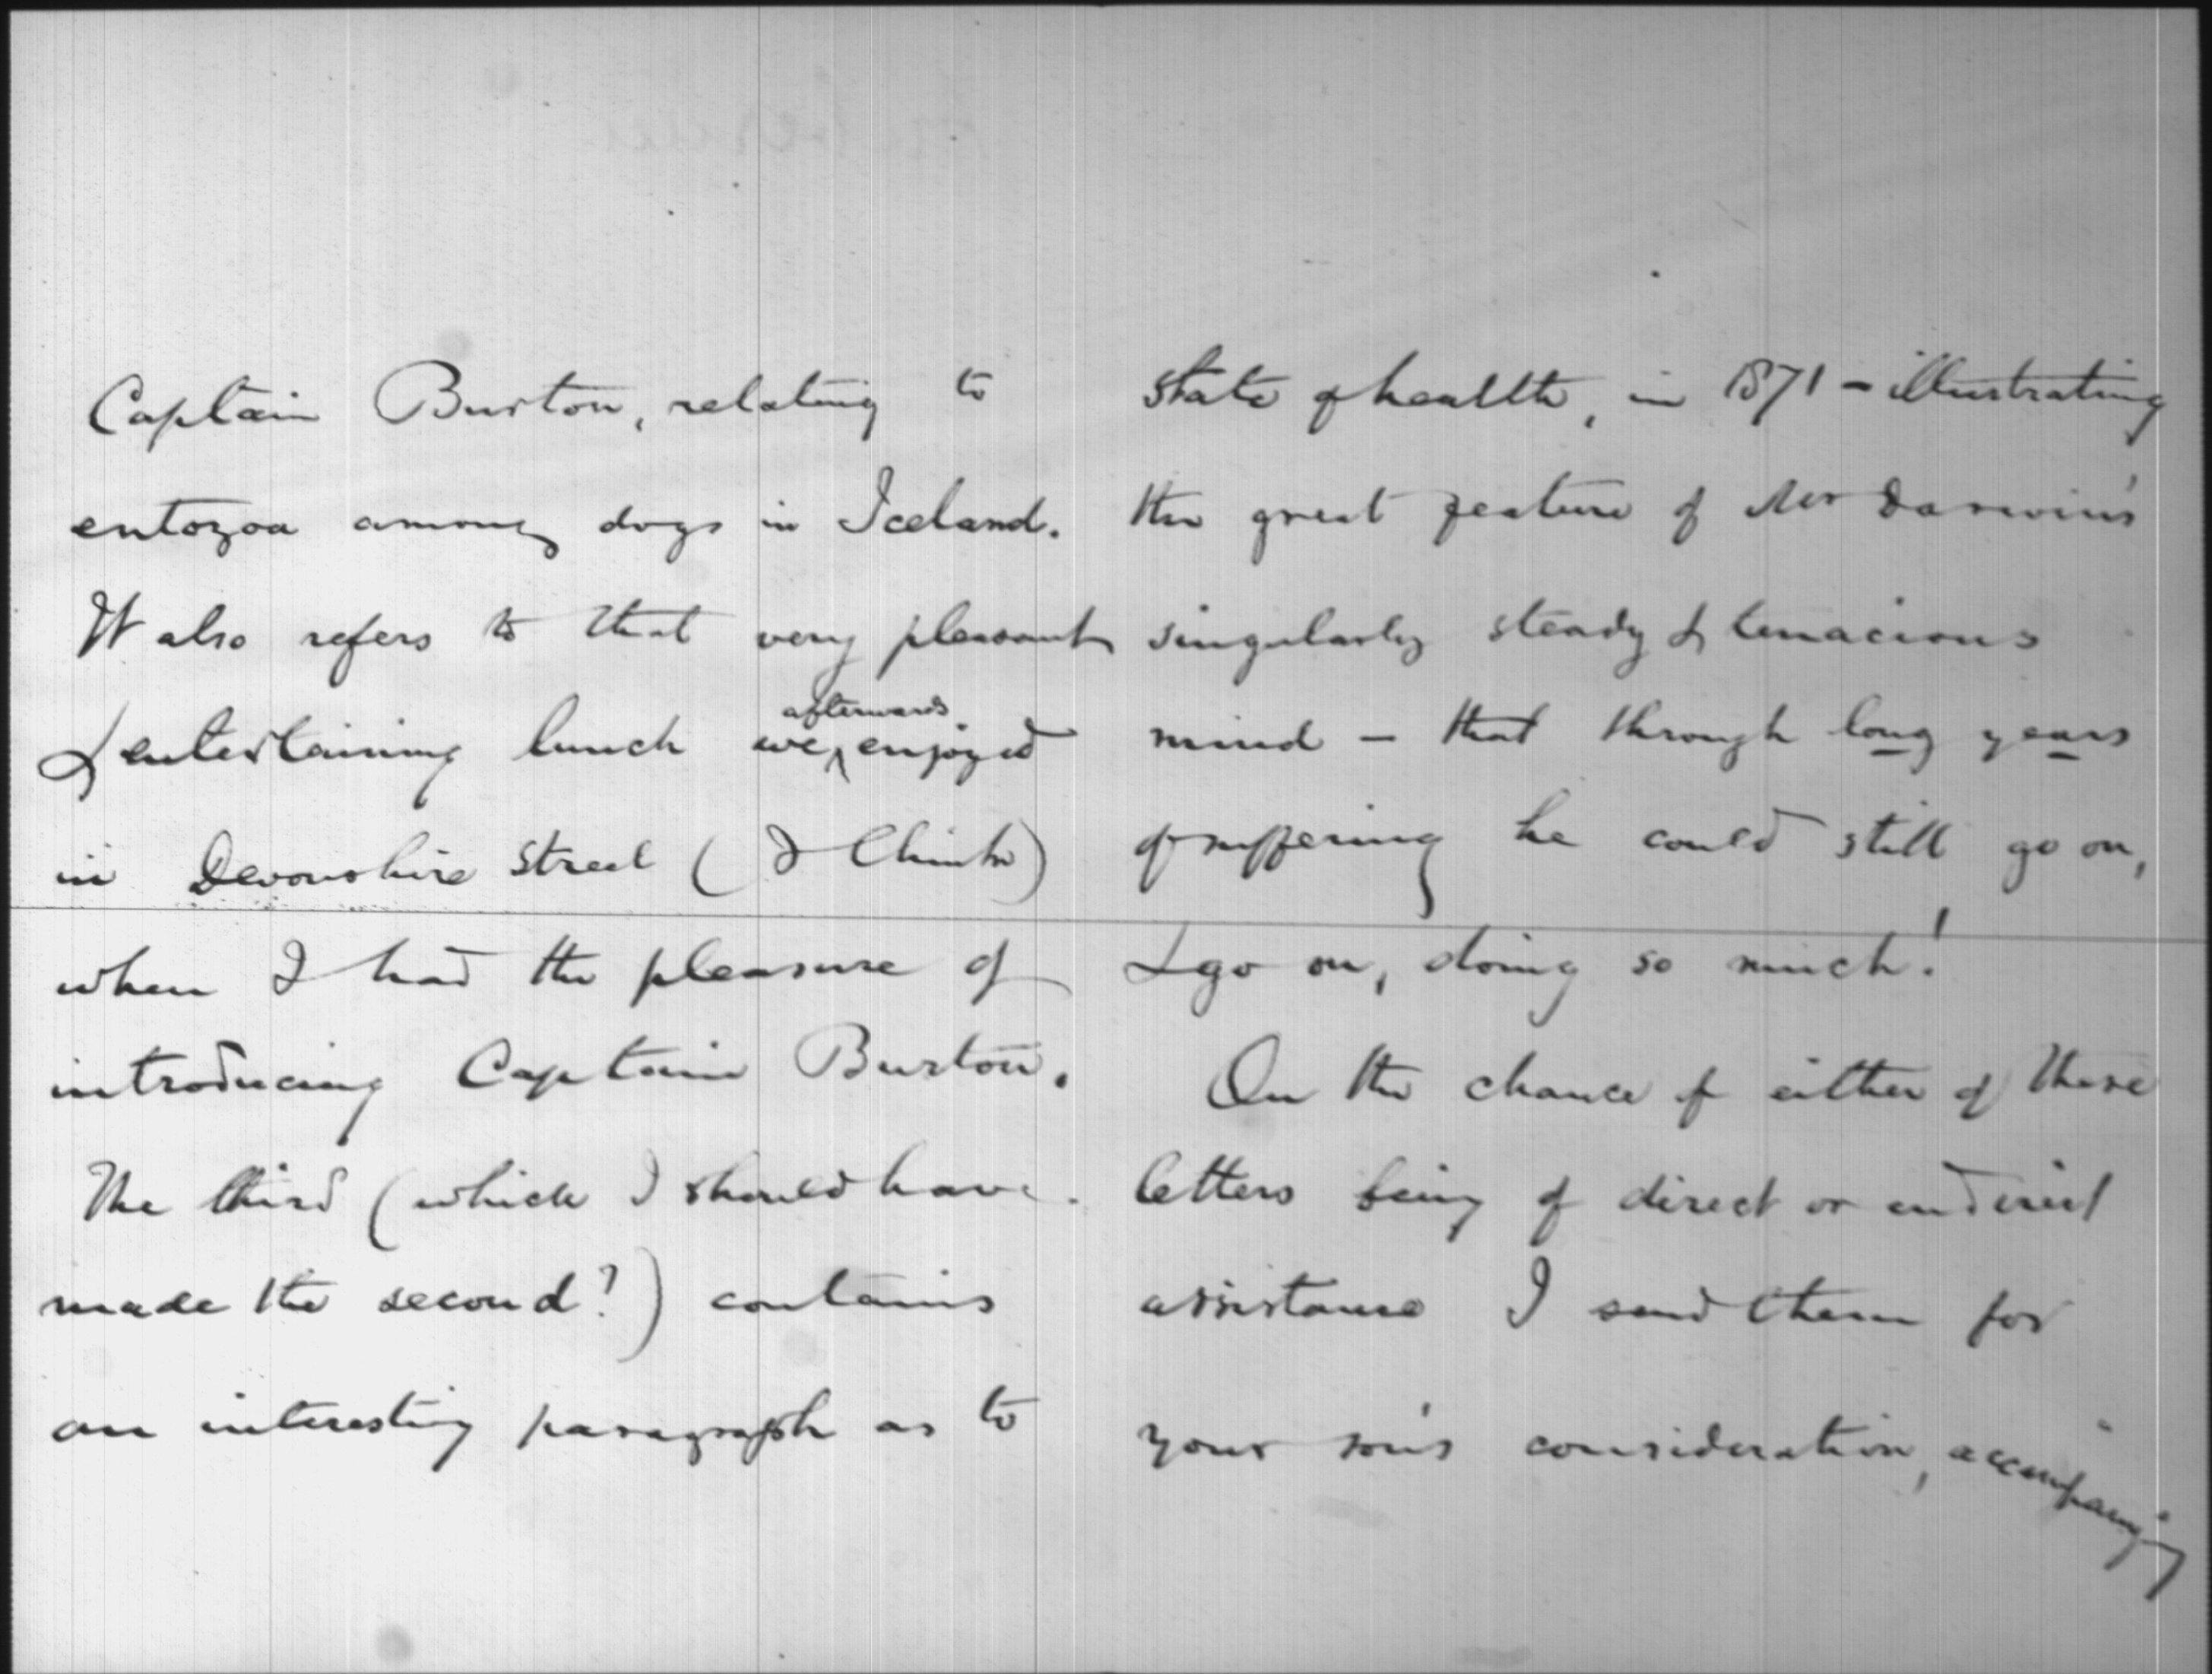 Captain Burton, relating to
entozoa among dogs in Iceland.
It also refers to that very pleasant
& entertaining lunch we afterwards enjoyed
in Devonshire Street (I think)
when I had the pleasure of
introducing Captain Burton.
The third (which I should have
made the second?) contains
an interesting paragraph as to
state of health, in 1871 – illustrating
the great feature of Mr Darwin's
singularly steady & tenacious
mind – that through long years
of suffering he could still go on,
& go on, doing so much!
On the chance of either of these
letters being of direct or indirect
assistance I send them for
your son's consideration, accompanying